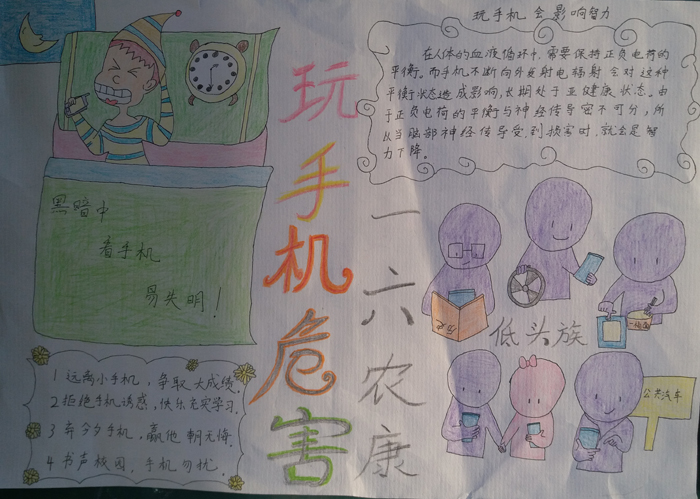 玩手机会影响智力
在人体的血液循环中,需要保持正负电荷的
平衡。而手机不断向外发射电辐射会对这种
平衡状态造成影响,长期处于亚健康状态。由
于正负电荷的平衡与神经传导密不可分,所
以当脑部神经传导受到损害时,就会是智
力下降。
玩手机危害
一六农康
黑暗中
看手机
易失明!
低头族
公共汽车
1 远离小手机,争取大成绩。
2 拒绝手机诱惑,快乐充实学习。
3 弃今夕手机,赢他朝无悔。
4 书声校园,手机勿扰。